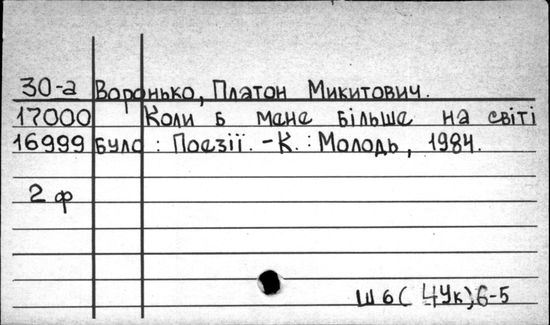 30-а Воронько, Платон Микитович.
17000 Коли б мене більше на світі
16999 було : Поезії. - К. : Молодь, 1984.
2 ф
Ш6(4Ук)6-5